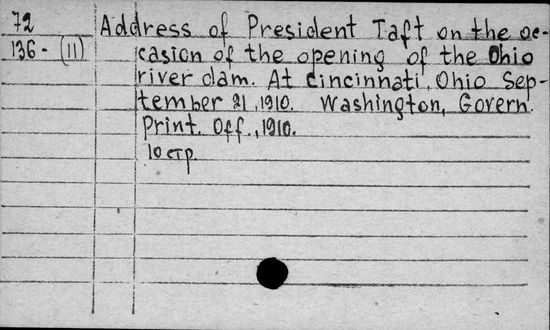 72 Address of President Taft on the oc-
136-(11) casion of the opening of the Ohio
river dam. At Cincinnati, Ohio Sep-
tember 21, 1910. Washington, Govern.
Print. Off., 1910.
10 стр.